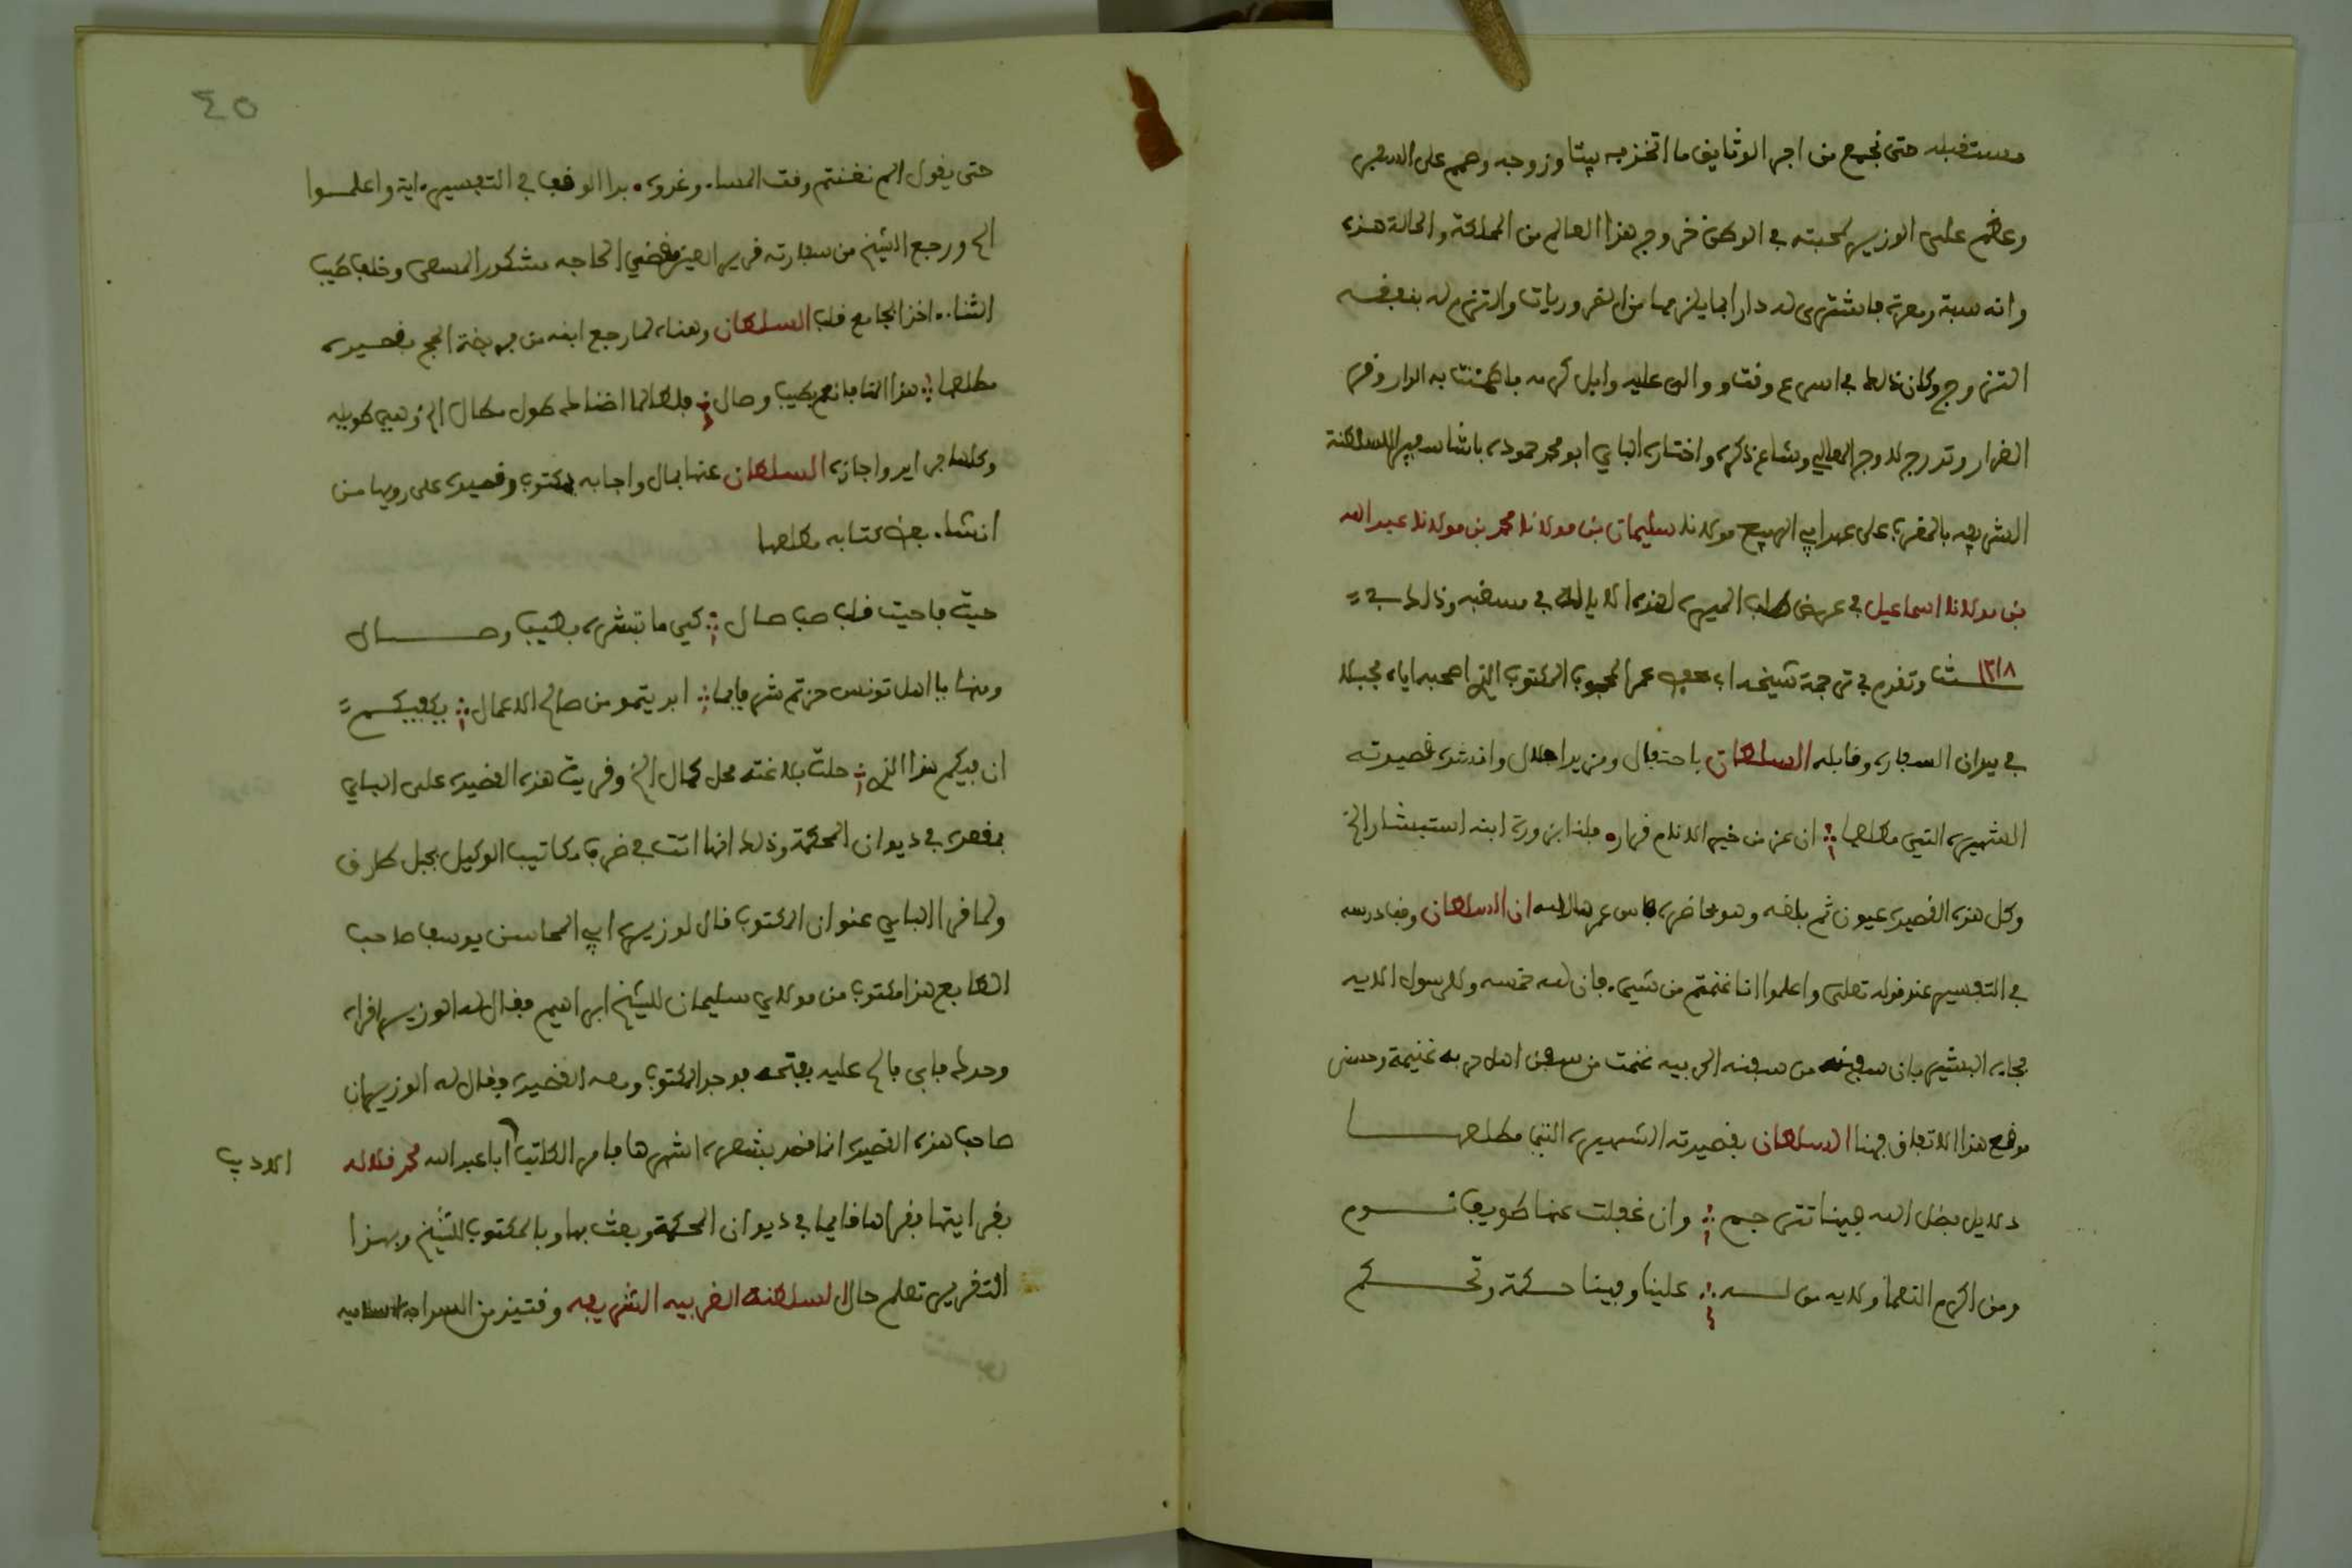 مستقبله حتى تجمع من اجر الوثايق ما اتخذ به بيتا وزوجه وهم على السفر
وعظم على الوزير لمحبته في الوطن خروج هذا العالم من المملكة والحالة هذه
وانه سبة ومعرة فاشترى له دارا بما يلزمها من الضروريات والتزم له بنفقة
التزوج وكان ذلك في اسرع وقت ووالى عليه وابل كرمه فاطمئنت به الدار وقر
القرار وتدرج لاوج المعالي وشاع ذكره واختاره الباي ابو محمد حموده باشا سفيرا للسلطنة
الشريفه بالمغرب على عهد ابي الربيع مولانا سليمان بن مولانا محمد بن مولانا عبد الله
بن مولانا اسماعيل في عرض طلب الميره لهذه الايالة في مسغبه وذلك في
١٢١٨ سنة وتقدم في ترجمة شيخه ابي حفص عمر المحجوب المكتوب الذي اصحبه اياه فجلا
في ميدان السفاره وقابله السلطان باحتفال ومزيد اجلال وانشده قصيدته
الشهيره التي مطلعها ان عز من خير الانام مزاره فلنا بزورة ابنه استبشار الخ
وكل هذه القصيده عيون ثم بلغه وهو بحاضرة فاس عمرها الله ان السلطان وقف درسه
في التفسير عند قوله تعلى واعلموا انما غنمتم من شيء فان لله خمسه وللرسول الايه
فجاءه البشير بان سفينه من سفنه الحربيه غنمت من سفن اهل حربه غنيمة وحسن
موقع هذا الاتفاق فهنا السلطان بقصيدته الشهيره التي مطلعها
دلايل فضل الله فينا تترجم وان غفلت عنها طوايف نوم
ومن اكرم النعما ولايه من له علينا وفينا حكمة وتحكم
٤٥
حتى يقول الم نغنتم وقت المساء وغدوه بدا الوقف في التفسير ءاية واعلموا
الخ ورجع الشيخ من سفارته قرير العين مقضي الحاجه مشكور المسعى وخلف طيب
الثناء اخذ بمجامع قلب السلطان وهناه لما رجع ابنه من فريضة الحج بقصيده
مطلعها هذا المنا فانعم بطيب وصال فلطالما اضناك طول مطال الخ وهي طويله
وكلها جواهر واجازه السلطان عنها بمال واجابه بمكتوب وقصيده على رويها من
انشاء بعض كتابه مطلعها
حيت فاحيت قلب صب صال كيما تبشره بطيب وصال
ومنها يا اهل تونس حزتم شرفا بما ابديتمو من صالح الاعمال يكفيكم
ان فيكم هذا الذي حلت بلاغته محل كمال الخ وقريت هذه القصيده على الباي
بقصره في ديوان المحكمة وذلك انها اتت في ظرف مكاتيب الوكيل بجبل طارق
ولما قرا الباي عنوان المكتوب قال لوزيره ابي المحاسن يوسف صاحب
الطابع هذا مكتوب من مولاي سليمان للشيخ ابراهيم فقال له الوزير اقراه
وحدك فابى فالح عليه بفتحه فوجد المكتوب ومعه القصيده فقال له الوزير ان
صاحب هذه القصيده انما قصد بشعره اشهارها فامر الكاتب ابا عبد الله محمد قلاله
الاديب
بقرايتها فقراها قايما في ديوان المحكمة وبعث بها وبالمكتوب للشيخ وبهذا
التقرير تعلم حال السلطنة الغربيه الشريفه وقتيذ من السذاجه الساميه